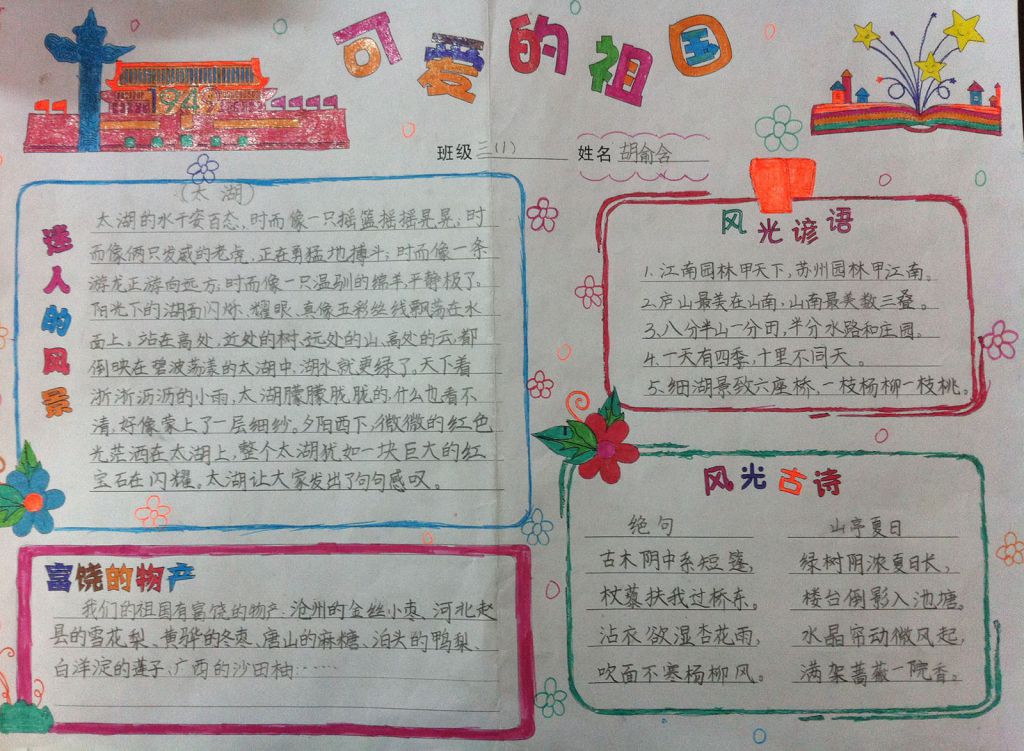 可爱的祖国
1949
班级 三(1) 姓名 胡俞含
迷人的风景
(太湖)
太湖的水千姿百态,时而像一只摇篮摇摇晃晃;时
而像俩只发威的老虎,正在勇猛地搏斗;时而像一条
游龙正游向远方;时而像一只温驯的绵羊平静极了。
阳光下的湖面闪烁、耀眼、真像五彩丝线飘荡在水
面上。站在高处,近处的树、远处的山、高处的云,都
倒映在碧波荡漾的太湖中,湖水就更绿了。天下着
淅淅沥沥的小雨,太湖朦朦胧胧的,什么也看不
清,好像蒙上了一层细纱。夕阳西下,微微的红色
光茫洒在太湖上,整个太湖犹如一块巨大的红
宝石在闪耀。太湖让大家发出了句句感叹。
富饶的物产
我们的祖国有富饶的物产、沧州的金丝小枣、河北赵
县的雪花梨、黄骅的冬枣、唐山的麻糖、泊头的鸭梨、
白洋淀的莲子、广西的沙田柚……
风光谚语
1.江南园林甲天下,苏州园林甲江南。
2.庐山最美在山南,山南最美数三叠。
3.八分半山一分田,半分水路和庄园。
4.一天有四季,十里不同天。
5.细湖景致六座桥,一枝杨柳一枝桃。
风光古诗
绝句
古木阴中系短篷,
杖藜扶我过桥东。
沾衣欲湿杏花雨,
吹面不寒杨柳风。
山亭夏日
绿树阴浓夏日长,
楼台倒影入池塘。
水晶帘动微风起,
满架蔷薇一院香。